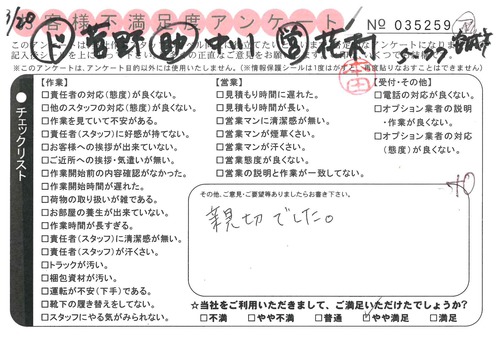 3/28
お客様不満足度アンケート
No 035259
ド 菅野 助 中川
【作業】
□責任者の対応(態度)が良くない。
□他のスタッフの対応(態度)が良くない。
□作業を見ていて不安がある。
□責任者(スタッフ)に好感が持てない。
□お客様への挨拶が出来ていない。
□ご近所への挨拶・気遣いが無い。
□作業開始前の内容確認がなかった。
□作業開始時間が遅れた。
□荷物の取り扱いが雑である。
□お部屋の養生が出来ていない。
□作業時間が長すぎる。
□責任者(スタッフ)に清潔感が無い。
□責任者(スタッフ)が汗くさい。
□トラックが汚い。
□梱包資材が汚い。
□運転が不安(下手)である。
□靴下の履き替えをしてない。
□スタッフにやる気がみられない。
チェックリスト
【営業】
□見積もり時間に遅れた。
□見積もり時間が長い。
□営業マンに清潔感が無い。
□営業マンが煙草くさい。
□営業マンが汗くさい。
□営業態度が良くない。
□営業の説明と作業が一致してない。
【受付・その他】
□電話の対応が良くない。
□オプション業者の説明・作業が良くない。
□オプション業者の対応(態度)が良くない。
その他、ご意見・ご要望等ありましたらお書き下さい。
親切でした。
☆当社をご利用いただきまして、ご満足いただけたでしょうか?
□不満 □やや不満 □普通 ☑やや満足 □満足